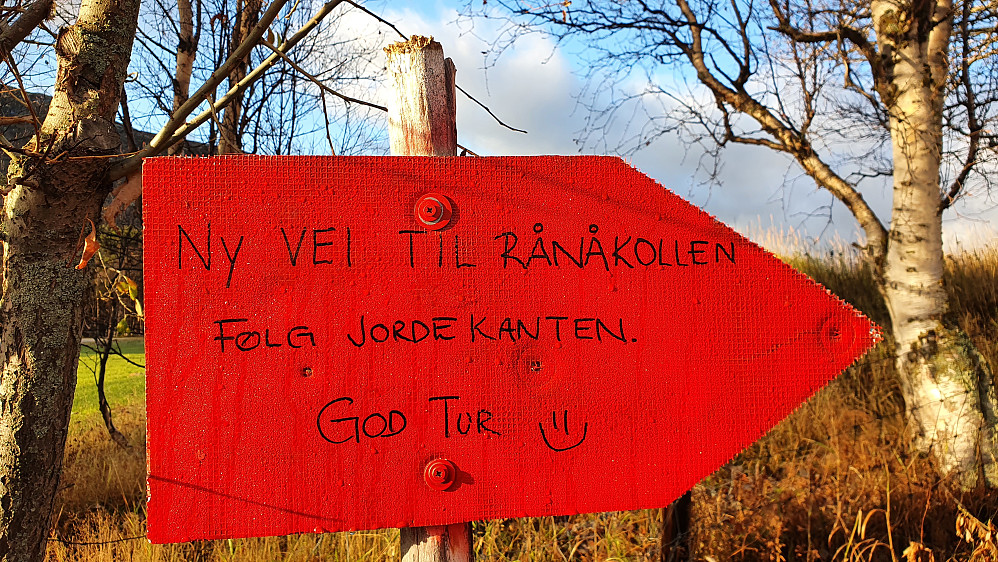 Ny VEI TIL RÅNÅKOLLEN
FØLG JORDEKANTEN.
GOD TUR